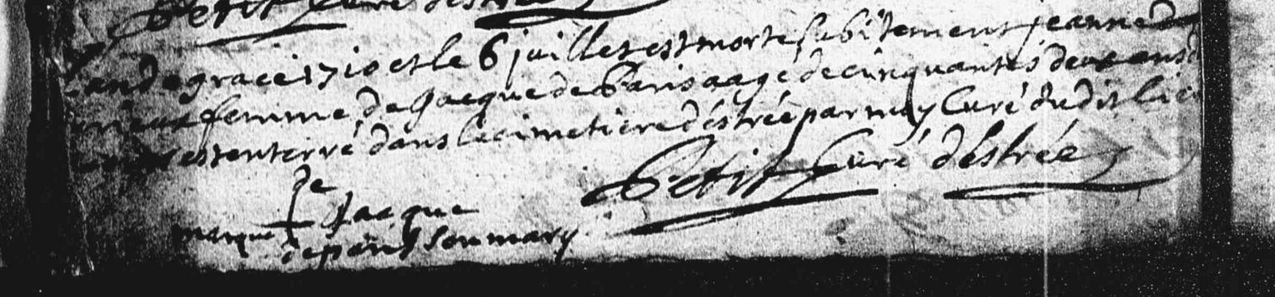 Petit Curé destrée
Lan de grace 1710 et le 6 juillet est morte subitement jeanne
femme de Jacque de Paris aagé de cinquantes deux ans
est enterré dans le cimetiere déstrée par moy Curé dudit lieu
Petit Curé déstrée
de
marque Jacque
deparis son mary